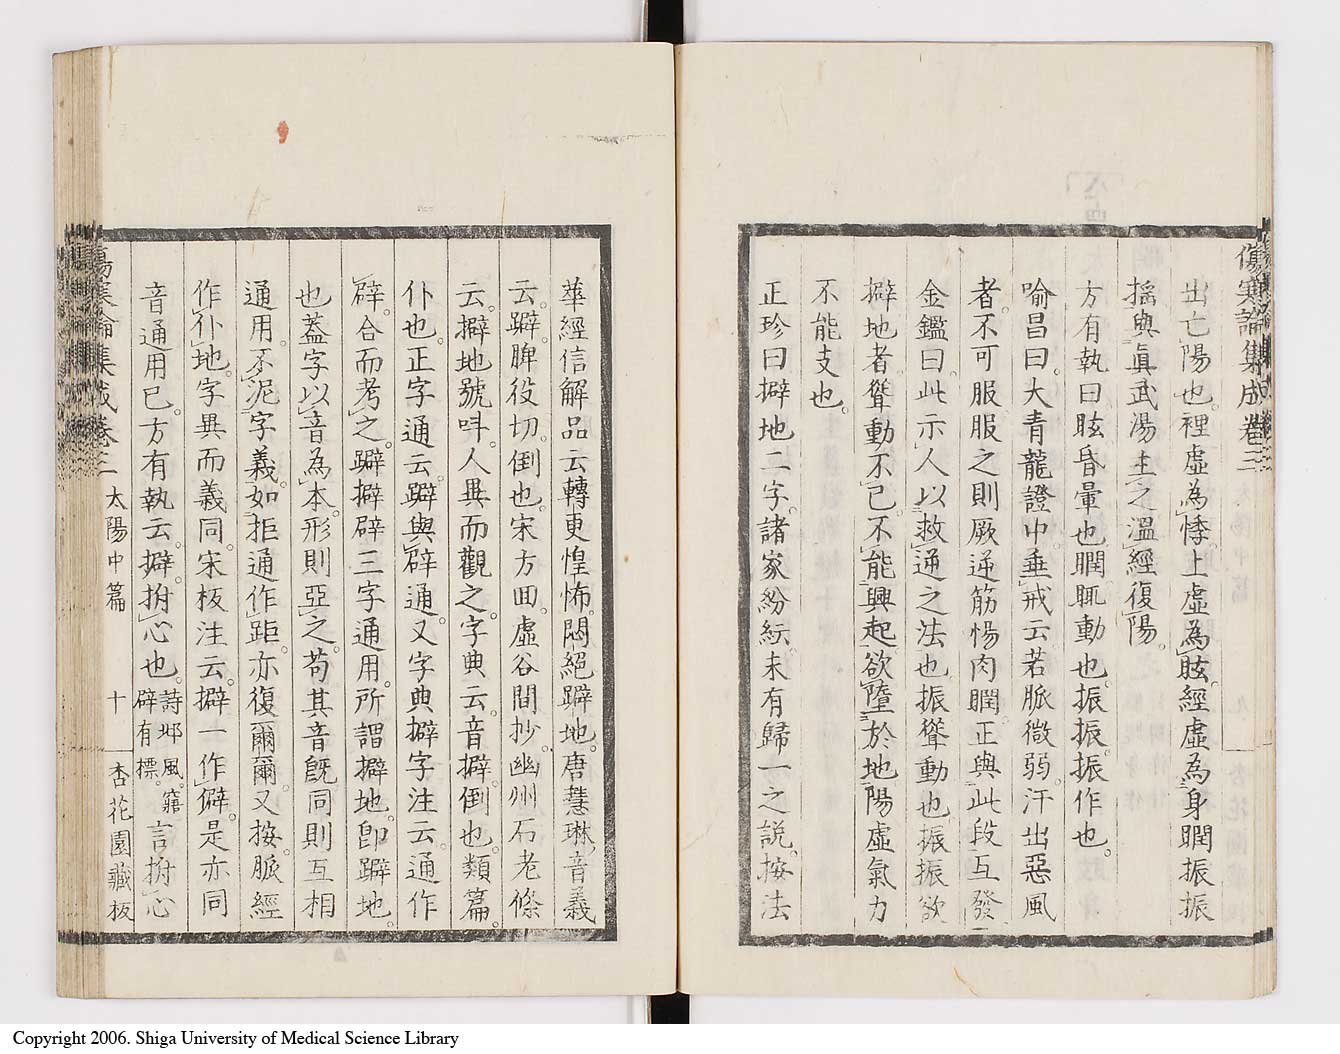 傷寒論集成卷三
出亡陽也。裡虛為悸上虛為眩經虛為身瞤振振
搖與眞武湯主之溫經復陽。
方有執曰眩昏暈也瞤輒動也。振振振作也。
喻昌曰大青龍證中垂戒云若脈微弱汗出惡風
者不可服服之則厥逆筋惕肉瞤正與此段互發
金鑑曰此示人以救逆之法也振聳動也振振欲
擗地者聳動不已不能興起欲墮於地陽虛氣力
不能支也
正珍曰擗地二字諸家紛紜未有歸一之說按法
華經信解品云轉更惶怖悶絕躃地。唐慧琳音義
云。躃脾役切。倒也。宋方回虛谷間抄。幽州石老條
云。擗地號呌。人異而觀之。字典云。音擗。倒也。類篇。
仆也。正字通云。躃與辟通。又字典擗字注云。通作
辟。合而考之。躃擗辟三字通用。所謂擗地。卽躃地。
也蓋字以音為本。形則亞之。苟其音旣同則互相
通用。不泥字義。如拒通作距。亦復爾爾。又按脈經
作仆地。字異而義同。宋板注云。擗一作僻。是亦同
音通用已。方有執云。擗。拊心也。詩邶風。寤辟有摽。言拊心
傷寒論集成卷三 太陽中篇 十 杏花園藏板
Copyright 2006. Shiga University of Medical Science Library